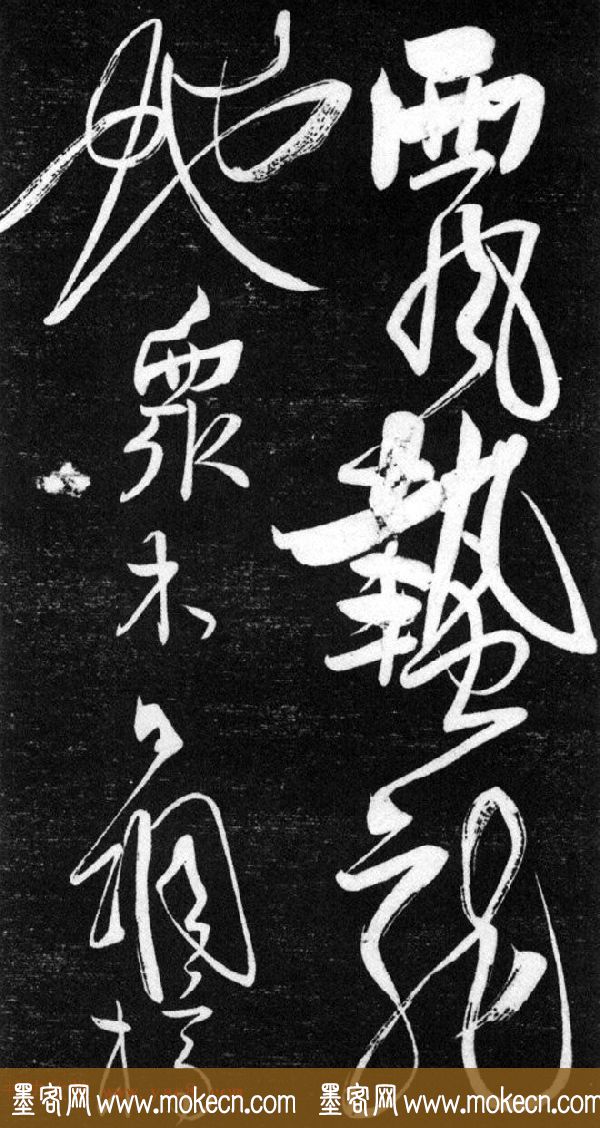 西風蟄龍
蛇眾木凋槁
墨客网 www.mokecn.com 墨客网 www.mokecn.com